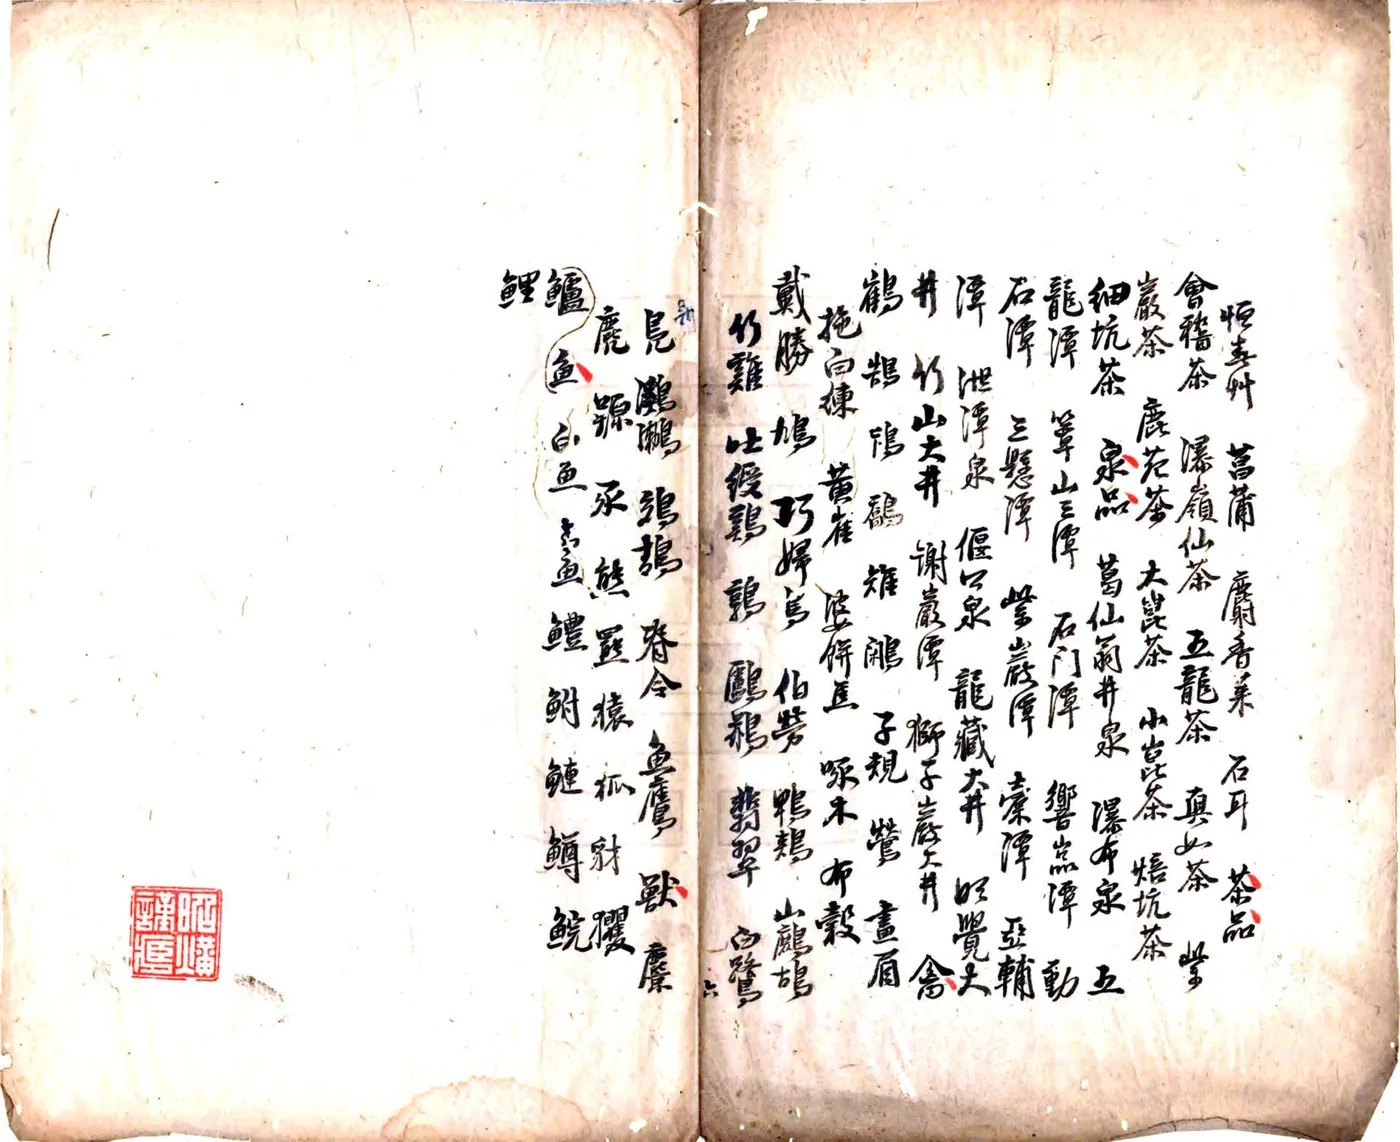 恒春艸 菖蒲 麝香菜 石耳 茶品
會稽茶 瀑嶺仙茶 五龍茶 真如茶 紫
巖茶 鹿苑茶 大崑茶 小崑茶 焙坑茶
細坑茶 泉品 葛仙翁井泉 瀑布泉 五
龍潭 簟山三潭 石门潭 響嵓潭 動
石潭 三懸潭 紫巖潭 橐潭 亞輔
潭 泄潭泉 偃公泉 龍藏大井 明覺大
井 竹山大井 谢巖潭 獅子巖大井 禽
鶴 鵲 鴇 鷸 雉 鵰 子規 鶯 畫眉
拖白練 黄雀 婆餅焦 啄木 布穀
戴勝 鳩 巧婦鳥 伯勞 鴨鵊 山鷓鴣
竹雞 吐綬鷄 鶉 鷗鷀 翡翠 白鷺
六
凫 鸂鶒 鵁鶄 脊令 魚鷹 獸 麋
鹿 豕 熊 羆 猿 狐 豺 玃
鱸 魚 白魚 鱧 鮒 鰱 鱒 鯇
鯉